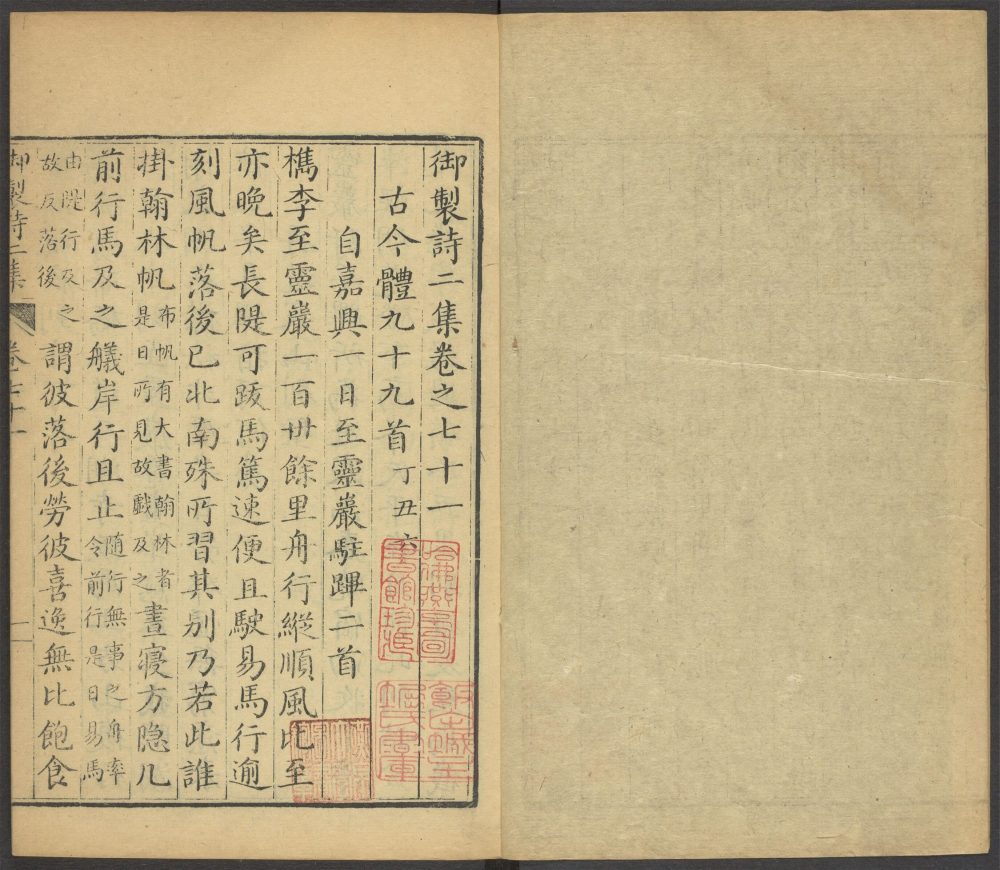 御製詩二集卷之七十一
古今體九十九首丁丑六
自嘉興一日至靈巖駐蹕二首
檇李至靈巖一百卅餘里舟行縱順風比至
亦晚矣長隄可跋馬篤速便且駛易馬行逾
刻風帆落後已北南殊所習其別乃若此誰
掛翰林帆布帆有大書翰林者是日所見故戲及之晝寢方隱几
前行馬及之艤岸行且止隨行無事之舟率令前行是日易馬
由隄行及之故反落後謂彼落後勞彼喜逸無比飽食
御製詩二集
卷七十一
一
哈佛燕京圖書館珍藏